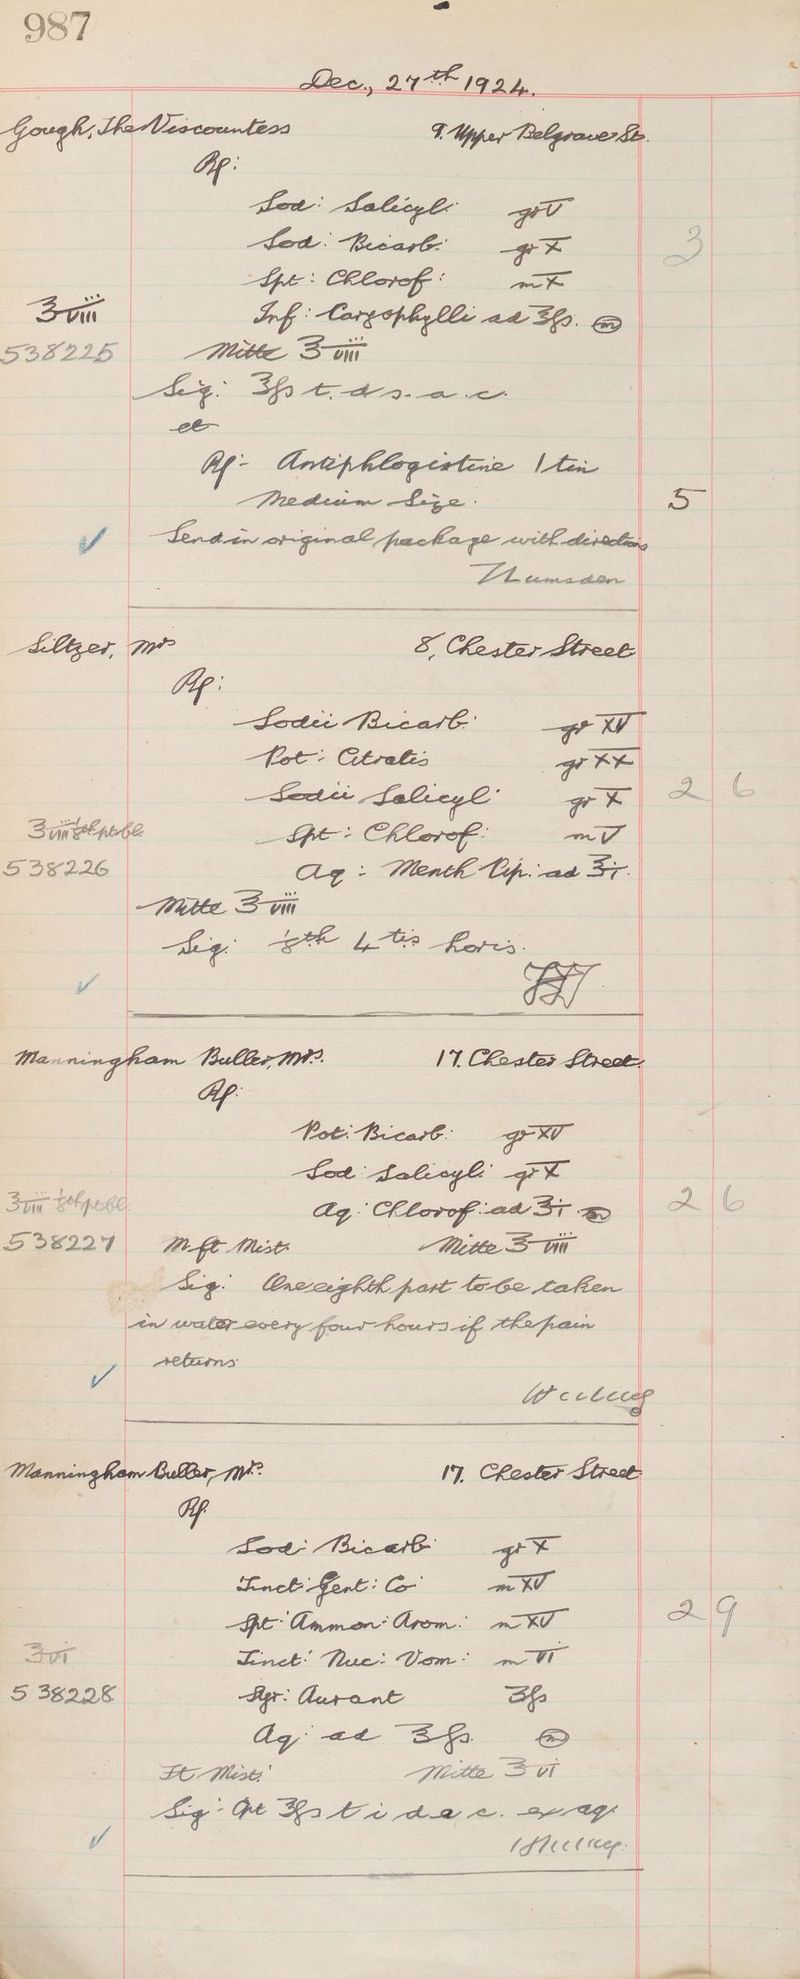 987
Dec., 27th 1924.
Gough, The Viscountess 9. Upper Belgrave St.
Rp:
Sod: Salicyl: gr V
Sod: Bicarb: gr X
3
Spt: Chlorof: m X
℥viii Inf: Caryophylli ad ℥fs. (m)
538225 Mitte ℥viii
Sig: ℥fs t. d s. a. c.
et
Rp:- Antiphlogistine 1 tin
Medium Size. 5
✓ Send in original package with directions
Lumsden
Siltzer, Mrs 8, Chester Street
Rp:
Sodii Bicarb: gr XV
Pot: Citratis gr XX
Sodii Salicyl: gr X 2 6
℥viii 1/8th pt bl. Spt: Chlorof: m V
538226 Aq: Menth Pip: ad ℥i.
Mitte ℥viii
Sig: 1/8th 4tis horis.
✓
Manningham Buller, Mrs. 17. Chester Street.
Rp:
Pot: Bicarb: gr XV
Sod: Salicyl: gr X
℥viii 1/8th pt bl. Aq: Chlorof: ad ℥i. (m) 2 6
538227 M ft Mist. Mitte ℥viii
Sig: One eighth part to be taken
in water every four hours if the pain
returns
✓
Manningham Buller, Mrs. 17. Chester Street
Rp.
Sod: Bicarb: gr X
Tinct: Gent: Co: m XV
Spt: Ammon: Arom: m XV 2 9
℥vi Tinct: Nuc: Vom: m VI
538228 Syr: Aurant ʒfs
Aq: ad ℥fs. (m)
Ft Mist: Mitte ℥vi
Sig: Cpt ℥fs t i d a c. ex aq.
✓